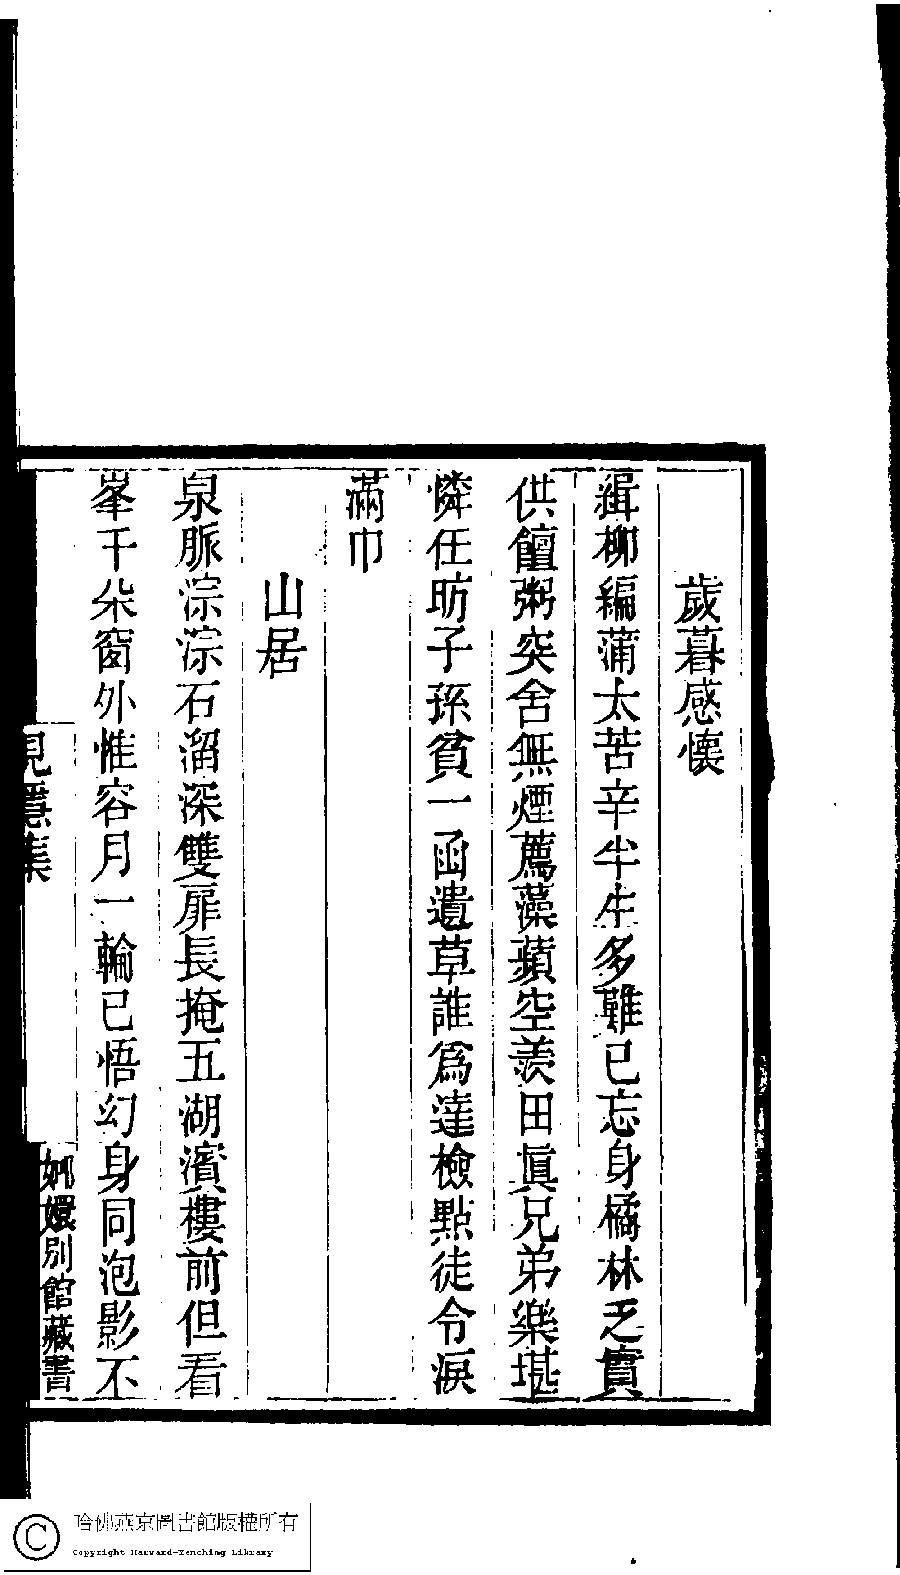 歲暮感懷
緝柳編蒲太苦辛半生多難已忘身橘林乏實
供饘粥突舍無煙薦藻蘋空羨田眞兄弟樂堪
憐任昉子孫貧一函遺草誰爲達檢點徒令淚
滿巾
山居
泉脈淙淙石溜深雙扉長掩五湖濱樓前但看
峯千朵窗外惟容月一輪已悟幻身同泡影不
集
嫏嬛別館藏書
哈佛燕京圖書館版權所有
Copyright Harvard-Yenching Library